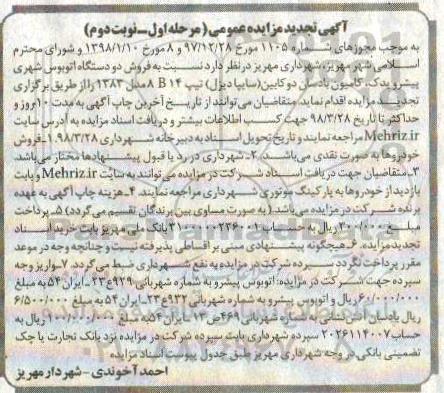 آگهی تجدید مزایده عمومی (مرحله اول ــ نوبت دوم)
به موجب مجوزهای شماره ۱۱۰۵ مورخ ۹۷/۱۲/۲۸ و ۸ مورخ ۱۳۹۸/۱/۱۰ و شورای محترم
اسلامی شهر مهریز، شهرداری مهریز در نظر دارد نسبت به فروش دو دستگاه اتوبوس شهری
پیشرو یدک، کامیون پادسان دو کابین (سایپا دیزل) تیپ B ۱۴ ۸ مدل ۱۳۸۳ را از طریق برگزاری
تجدید مزایده اقدام نماید. متقاضیان می توانند از تاریخ آخرین چاپ آگهی به مدت ۱۰ روز و
حداکثر تا تاریخ ۹۸/۳/۲۸ جهت کسب اطلاعات بیشتر و دریافت اسناد مزایده به آدرس سایت
Mehriz.ir مراجعه نمایند و تاریخ تحویل اسناد به دبیرخانه شهرداری ۹۸/۳/۲۸ ۱ـ فروش
خودروها به صورت نقدی می باشد. ۲ـ شهرداری در رد یا قبول پیشنهادها مختار می باشد.
۳ـ متقاضیان جهت دریافت اسناد شرکت در مزایده می توانند به سایت Mehriz.ir و بابت
بازدید از خودروها به پارکینگ موتوری شهرداری مراجعه نمایند. ۴ـ هزینه چاپ آگهی به عهده
برنده شرکت در مزایده می باشد. (به صورت مساوی بین برندگان تقسیم می گردد) ۵ـ پرداخت
مبلغ ۲۰۰/۰۰۰ ریال به حساب بانک ملی مهریز بابت خرید اسناد
تجدید مزایده. ۶ـ هیچگونه پیشنهادی مبنی بر اقساطی پذیرفته نیست و چنانچه وجه در موعد
مقرر پرداخت نگردد سپرده شرکت در مزایده به نفع شهرداری ضبط می گردد. ۷ـ واریز وجه
سپرده جهت شرکت در مزایده: اتوبوس پیشرو به شماره شهربانی ۹۲۹ع۲۳ـ ایران ۵۴ به مبلغ
۶۰/۰۰۰/۰۰۰ ریال و اتوبوس پیشرو به شماره شهربانی ۹۳۲ع۲۳ـ ایران ۵۴ به مبلغ ۶/۵۰۰/۰۰۰
ریال پادسان آتش نشانی به شماره شهربانی ۴۶۹ص۱۳ ایران ۵۴ به مبلغ ریال به
حساب ۲۰۲۶۱۱۴۰۰۷ سپرده شهرداری بابت سپرده شرکت در مزایده نزد بانک تجارت یا چک
تضمینی بانکی در وجه شهرداری مهریز طبق جدول پیوست اسناد مزایده
احمد آخوندی ـ شهردار مهریز